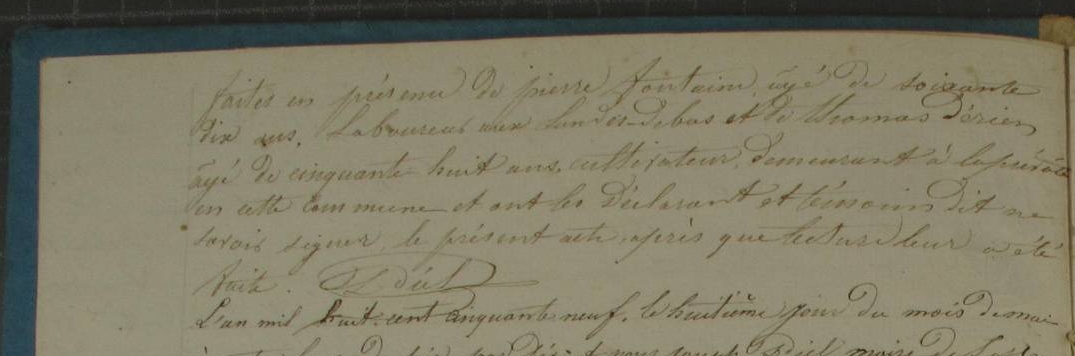 faites en présence de pierre fontaine, âgé de soixante
dix ans, Laboureur aux Landes-debas et de thomas dérien
âgé de cinquante huit ans, cultivateur, demeurant à
en cette Commune et ont les Déclarant et témoins dit ne
savoir signer, le présent acte, après que lecture leur a été
faite.
L'an mil huit-cent Cinquante neuf, le huitième jour du mois de mai
maire